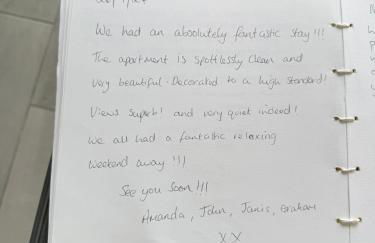 We had an absolutely fantastic stay!!!
The apartment is spotlessly clean and
very beautiful. Decorated to a high standard!
Views superb! and very quiet indeed!
We all had a fantastic relaxing
weekend away!!!
See you soon!!!
Amanda, John, Janis, Graham
XX